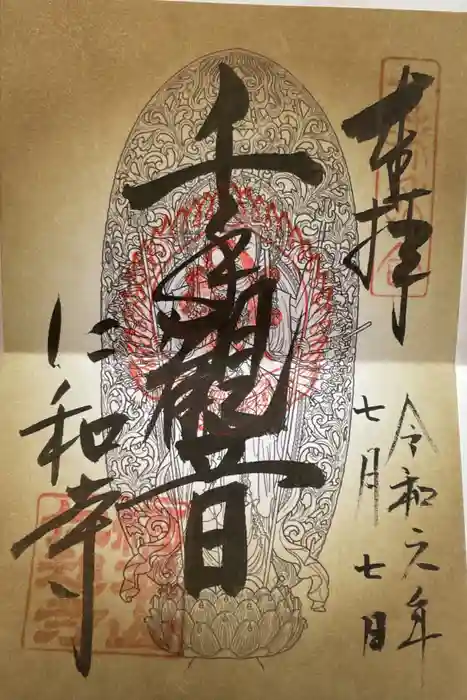 奉拝
令和六年
七月七日
千手観音
仁和寺